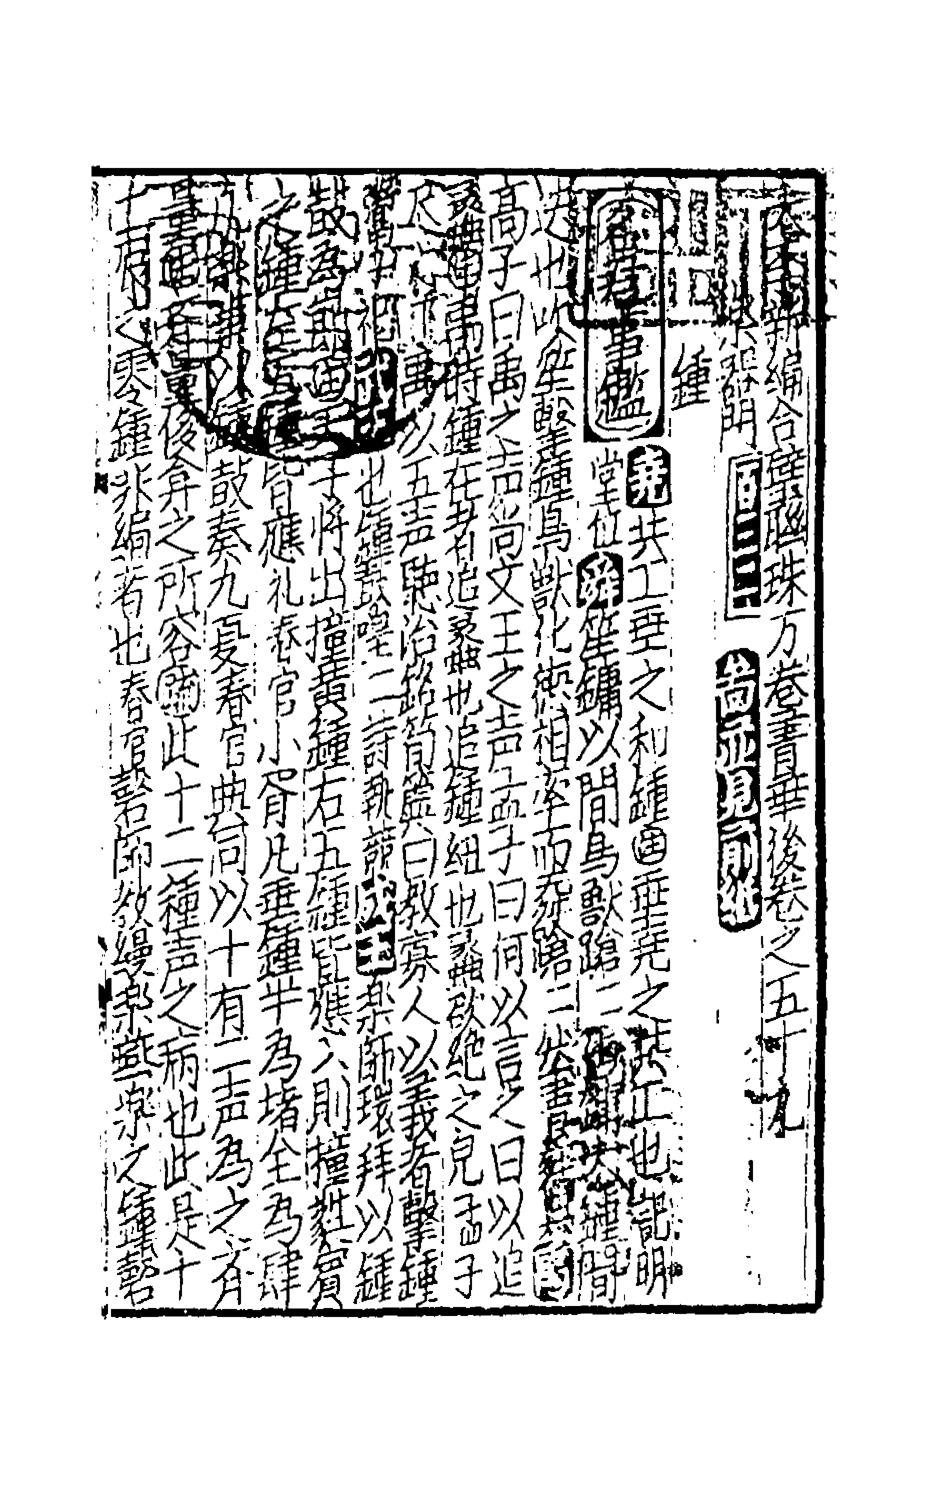 太學新編合璧聯珠万卷菁華後卷之五十九
樂器門 百二二 尚亦見前㳂
鍾
君臣事鑑 堯 共工垂之和鍾 國 垂堯之共工也記明
堂位 舜 笙鏞以間鳥獸蹌二 鍾間
迭也吹笙擊鍾鳥獸化德相率而舞蹌二 禹
高子曰禹之声尚文王之声孟子曰何以言之曰以追
蠡 禹時鍾在者追蠡也追鍾紐也蠡欲絶之皃孟子
禹以五声聽治銘筍簴曰教寡人以義者擊鍾
也鍾鼓喤二詩執競 樂師環拜以鍾
鼓為節 天子將出撞黄鍾右五鍾皆應入則撞蕤賓
之鍾左五鍾皆應礼春官小胥凡垂鍾半為堵全為肆
以鍾鼓奏九夏春官典同以十有二声為之齊
量 侈弇之所容 此十二種声之病也此是十
二辰之零鍾非編者也春官磬師教縵樂燕樂之鍾磬